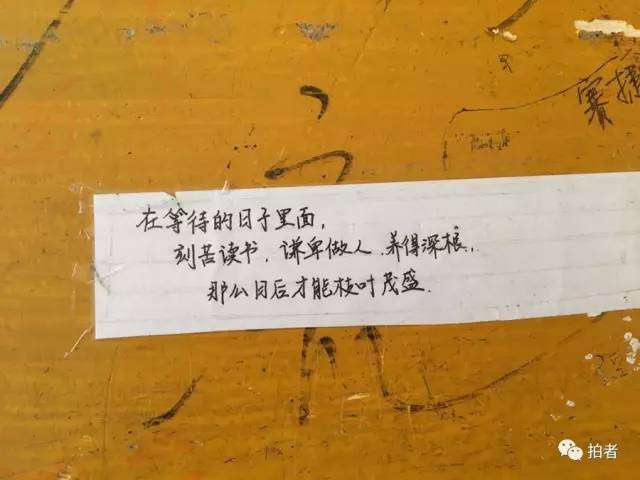 在等待的日子里面,
刻苦读书,谦卑做人,养得深根,
那么日后才能枝叶茂盛.
赛
拍者